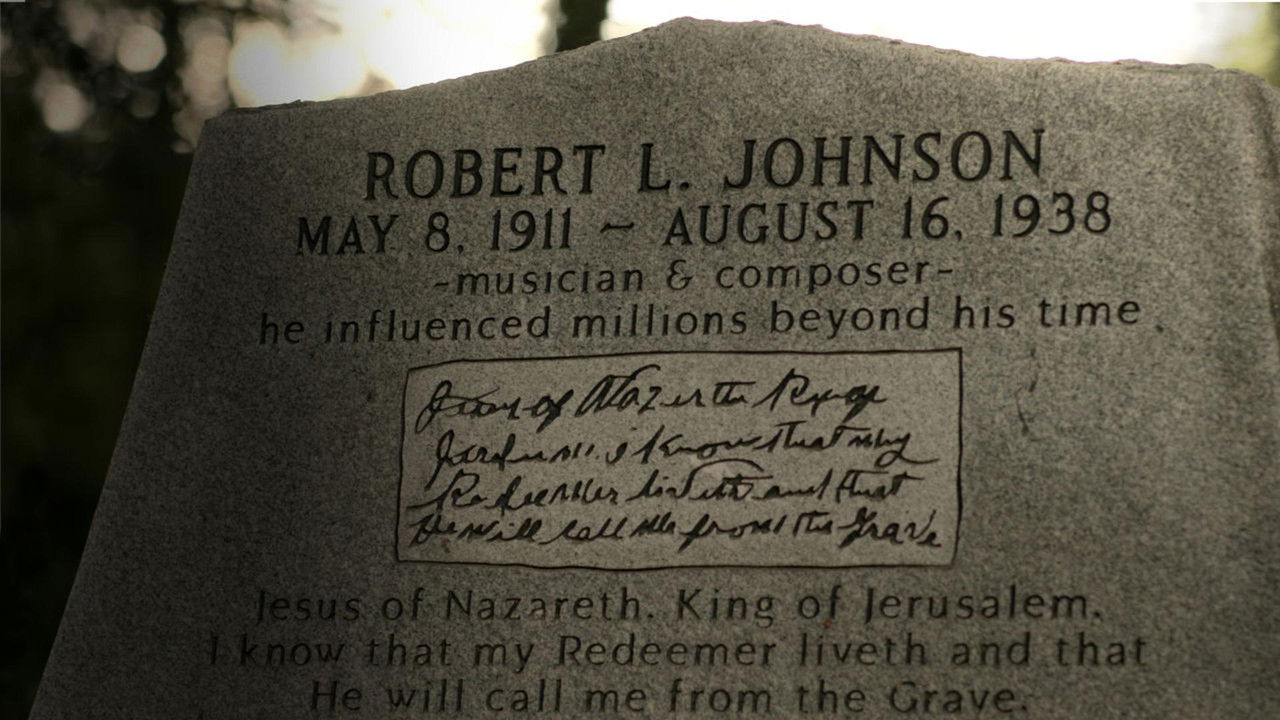 ROBERT L. JOHNSON
MAY 8, 1911 ~ AUGUST 16, 1938
-musician & composer-
he influenced millions beyond his time
of Nazerth
I know that my
Redeemer liveth and that
He will call me from the Grave
Jesus of Nazareth, King of Jerusalem,
I know that my Redeemer liveth and that
He will call me from the Grave.